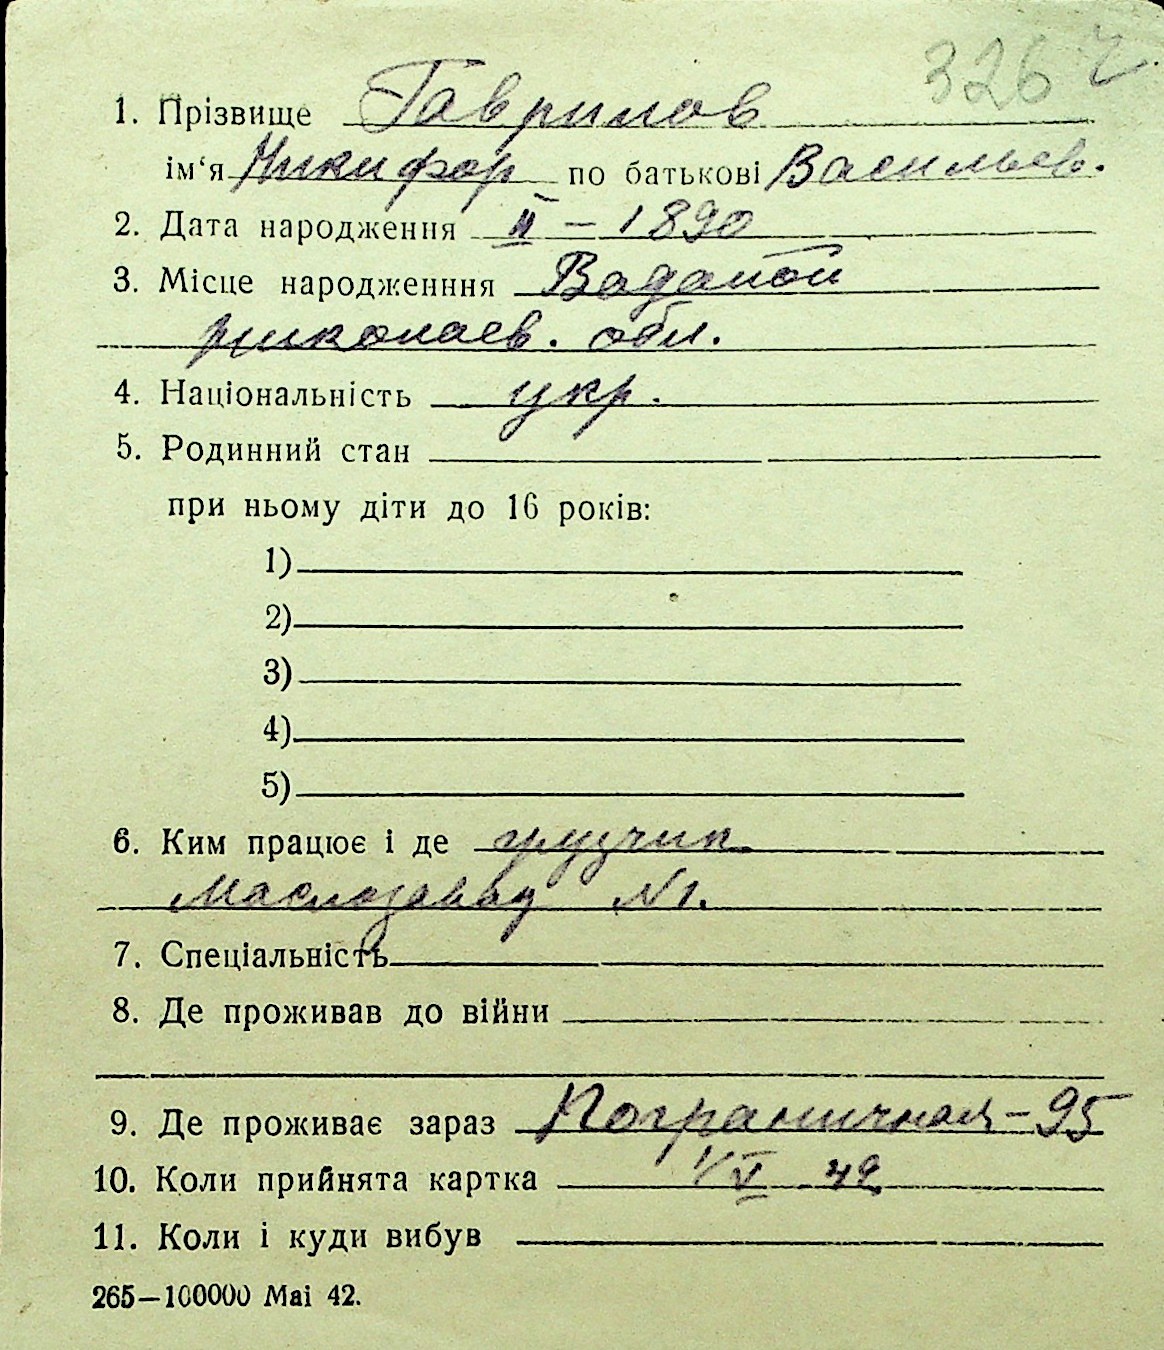 326 ч.
1. Прізвище Гаврилов
ім‘я Никифор по батькові Васильев.
2. Дата народження II – 1890
3. Місце народженння Водопой
николаев. обл.
4. Національність укр.
5. Родинний стан
при ньому діти до 16 років:
1)
2)
3)
4)
5)
6. Ким працює і де грузчик
Маслозавод N1.
7. Спеціальність
8. Де проживав до війни
9. Де проживає зараз Пограничная – 95
10. Коли прийнята картка 1/V 42
11. Коли і куди вибув
265—100000 Маі 42.